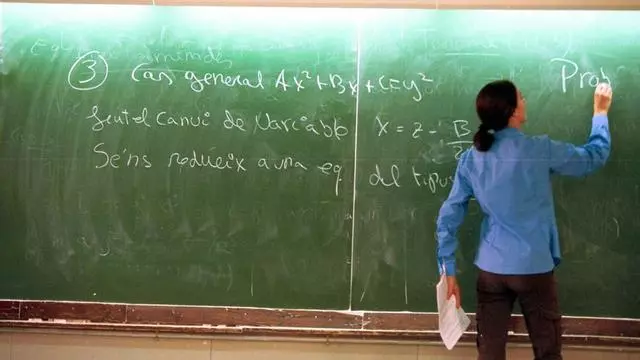 ③ Cas general Ax²+Bx+C=y²
Prob
fent el canvi de variable x = z - B
Se'ns redueix a una eq del tipus